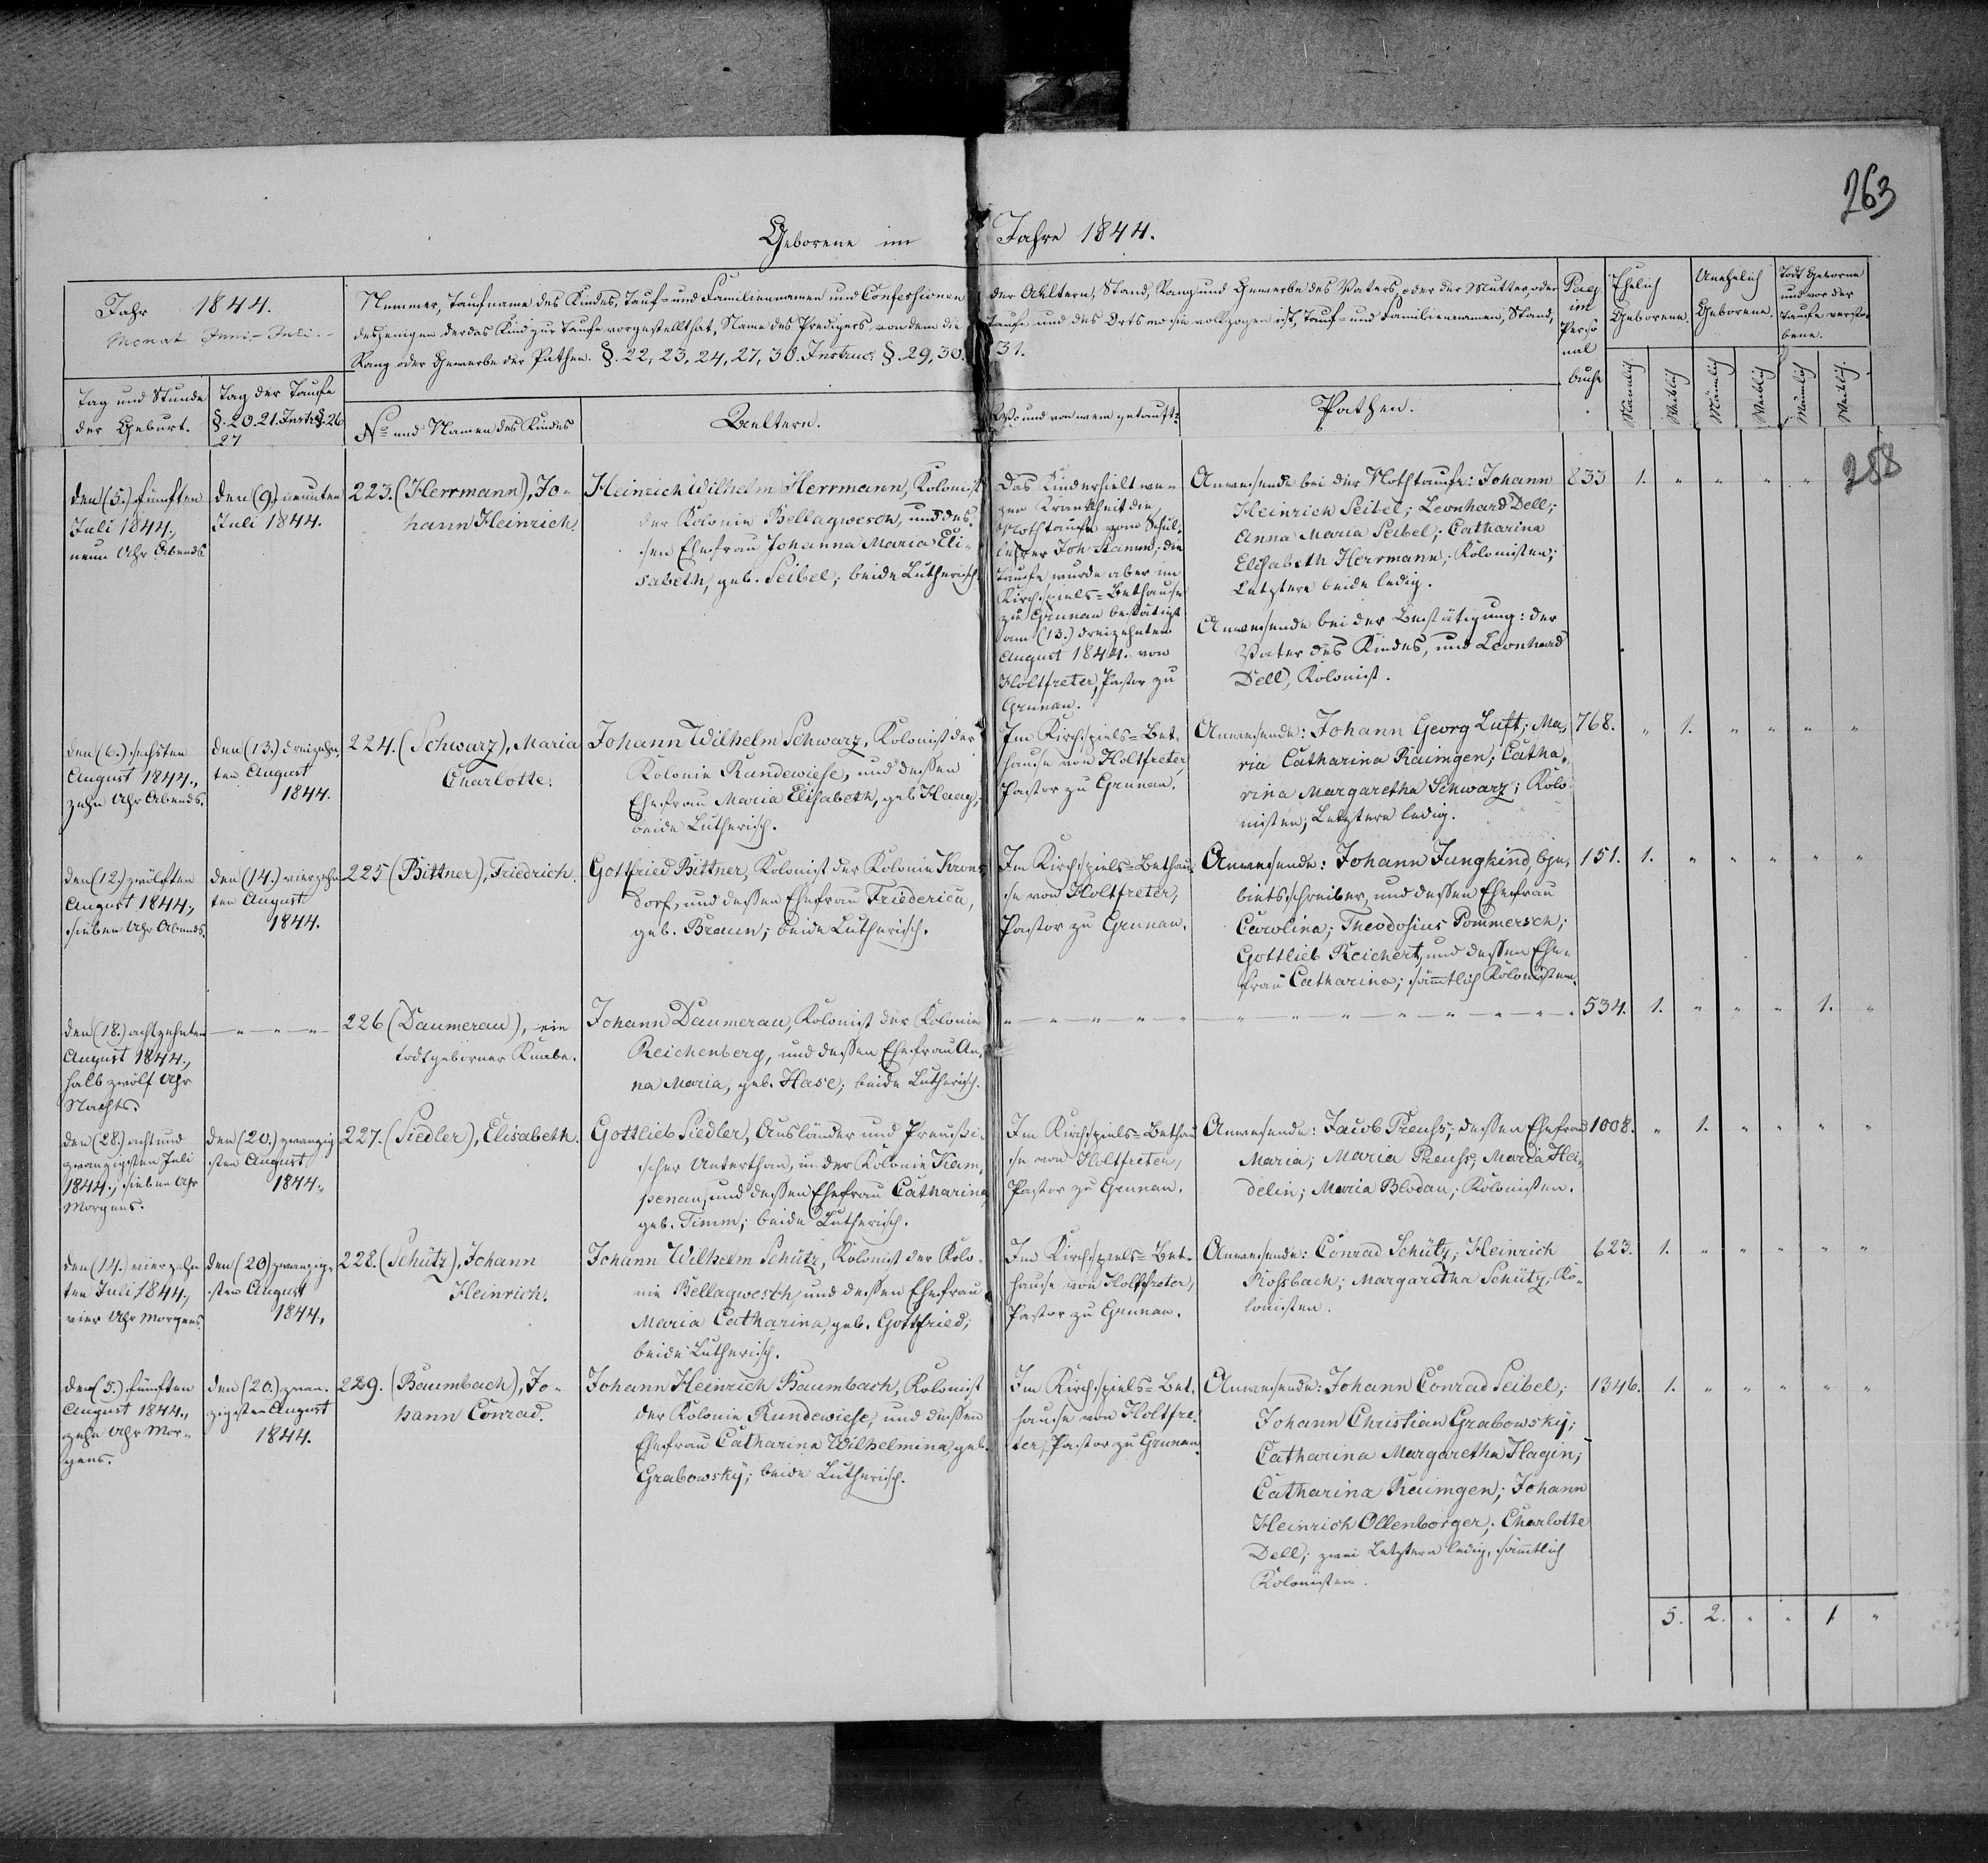 263
Geborene im Jahre 1844.
Jahr 1844.
Monat Juni-Juli.-
Nummer, Taufname des Kindes, Tauf- und Familiennamen und Confessionen der Aeltern, Stand, Rang und Gewerbe des Vaters, oder der Mutter, oder
desjenigen der das Kind zur Taufe vorgestellt hat, Name des Predigers, von dem die Taufe und des Orts wo sie vollzogen ist, Tauf- und Familiennamen, Stand,
Rang oder Gewerbe der Pathen. §. 22, 23, 24, 27, 30. Instruc: §. 29, 30. 31.
Pag
im
Perso
nal
buche
Ehelich
Geborene.
Unehelich
Geborene.
Todt Geborne
und vor der
Taufe verstor
bene.
Tag und Stunde
der Geburt.
Tag der Taufe
§. 20. 21. Instr. §. 26
27
No und Namen des Kindes
Aeltern.
Wo und von wem getauft:
Pathen.
Männlich
Weiblich
Männlich
Weiblich
Männlich
Weiblich
258
den (5.) fünften
Juli 1844.,
neun Uhr Abends
den (9.) neunten
Juli 1844.
223. (Herrmann), Jo-
hann Heinrich.
Heinrich Wilhelm Herrmann, Kolonist
der Kolonie Bellagwesch, und des-
sen Ehefrau Johanna Maria Eli-
sabeth, geb. Seibel; beide Lutherisch.
Das Kind erhielt we-
gen Krankheit die
Nothtaufe vom Schul-
lehrer Joh. Stamm; die
Taufe wurde aber im
Kirchspiels-Bethause
zu Grunau bestätigt
am (13.) dreizehnten
August 1844. von
Holtfreter, Pastor zu
Grunau.
Anwesende bei der Nothtaufe: Johann
Heinrich Seibel; Leonhard Dell;
Anna Maria Seibel; Catharina
Elisabeth Herrmann; Kolonisten;
Letztere beide ledig.
Anwesende bei der Bestätigung: der
Vater des Kindes, und Leonhard
Dell, Kolonist.
833 1. " " " "
den (6.) sechsten
August 1844.,
zehn Uhr Abends.
den (13.) dreizehn-
ten August
1844.
224. (Schwarz), Maria
Charlotte.
Johann Wilhelm Schwarz, Kolonist der
Kolonie Rundewiese, und dessen
Ehefrau Maria Elisabeth, geb. Haag;
beide Lutherisch.
Im Kirchspiels-Bet-
hause von Holtfreter,
Pastor zu Grunau.
Anwesende: Johann Georg Luft; Ma-
ria Catharina Raimgen; Catha-
rina Margaretha Schwarz; Kolo-
nisten; Letztere ledig.
768. " 1. " " " "
den (12.) zwölften
August 1844.,
sieben Uhr Abends.
den (14.) vierzehn
ten August
1844.
225 (Bittner), Friedrich.
Gottfried Bittner, Kolonist der Kolonie Krons
dorf, und dessen Ehefrau Friederica,
geb. Braun; beide Lutherisch.
Im Kirchspiels-Bethau
se von Holtfreter,
Pastor zu Grunau.
Anwesende: Johann Jungkind, Ge-
bietsschreiber, und dessen Ehefrau
Carolina; Theodosius Pommersch;
Gottlieb Reichert, und dessen Ehe-
frau Catharina; sämtlich Kolonisten.
151. 1. " " " " "
den (18.) achtzehnten
August 1844.,
halb zwölf Uhr
Nachts.
226 (Daumerau), ein
todtgeborner Knabe.
Johann Daumerau, Kolonist der Kolonie
Reichenberg, und dessen Ehefrau An-
na Maria, geb. Hase; beide Lutherisch.
534. 1. " " " 1. "
den (28.) acht und
zwanzigsten Juli
1844., sieben Uhr
Morgens.
den (20.) zwanzig
sten August
1844.
227. (Siedler), Elisabeth.
Gottlieb Siedler, Ausländer und Preußi-
scher Unterthan, in der Kolonie Kam-
penau, und dessen Ehefrau Catharina
geb. Timm; beide Lutherisch.
Im Kirchspiels-Bethau
se von Holtfreter,
Pastor zu Grunau.
Anwesende: Jacob Preuss; dessen Ehefrau
Maria; Maria Preuss; Maria Hei-
delin; Maria Blodau; Kolonisten.
1008. " 1. " " " "
den (14.) vierzehn
ten Juli 1844.,
vier Uhr Morgens
den (20) zwanzig-
sten August
1844.
228. (Schütz), Johann
Heinrich.
Johann Wilhelm Schütz, Kolonist der Kolo-
nie Bellagwesch, und dessen Ehefrau
Maria Catharina, geb. Gottfried;
beide Lutherisch.
Im Kirchspiels-Bet-
hause von Holtfreter,
Pastor zu Grunau.
Anwesende: Conrad Schütz; Heinrich
Rossbach; Margaretha Schütz; Ko-
lonisten.
623. 1. " " " " "
den (5.) fünften
August 1844.,
zehn Uhr Mor-
gens.
den (20.) zwan-
zigsten August
1844.
229. (Baumbach), Jo-
hann Conrad.
Johann Heinrich Baumbach, Kolonist
der Kolonie Rundewiese, und dessen
Ehefrau Catharina Wilhelmina, geb.
Grabowsky; beide Lutherisch.
Im Kirchspiels-Bet-
hause von Holtfre-
ter, Pastor zu Grunau.
Anwesende: Johann Conrad Seibel;
Johann Christian Grabowsky;
Catharina Margaretha Hagin;
Catharina Raimgen; Johann
Heinrich Ollenborger; Charlotte
Dell; zwei Letztere ledig, sämtlich
Kolonisten.
1346. 1. " " " " "
5. 2. " " 1 "